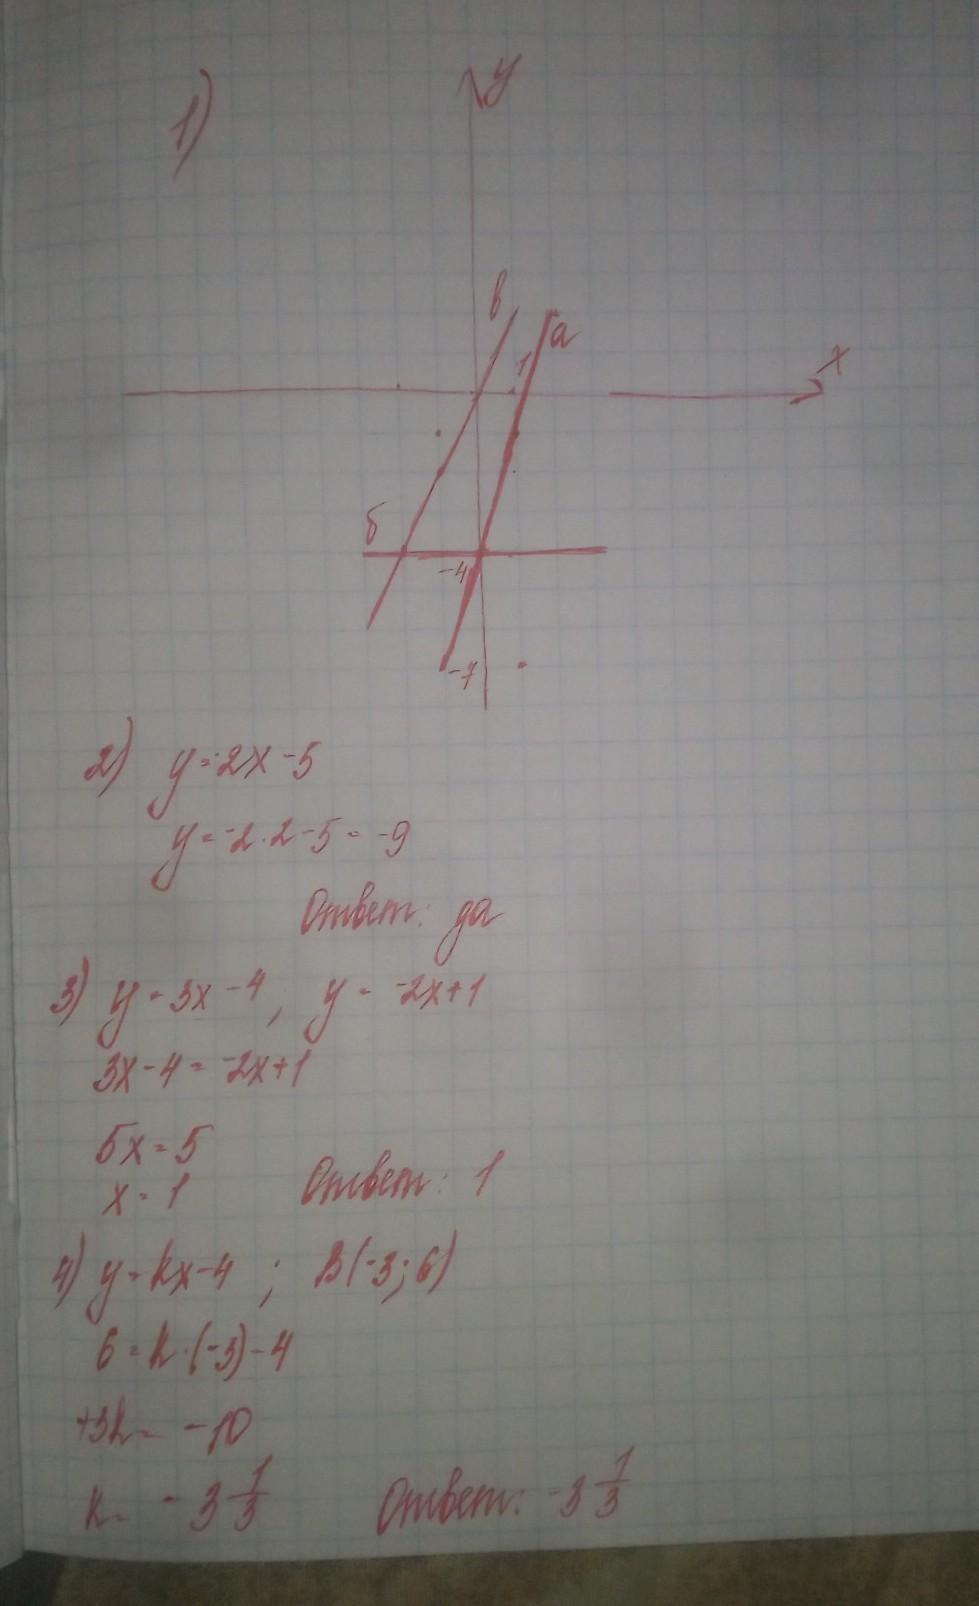 1)
y
в
а
1
x
б
-4
-7
2) y=-2x-5
y=-2·2-5=-9
Ответ: да
3) y=3x-4; y=-2x+1
3x-4=-2x+1
5x=5
x=1 Ответ: 1
4) y=kx-4; B(-3;6)
6=k·(-3)-4
+3k=-10
k=-3 1/3 Ответ: -3 1/3